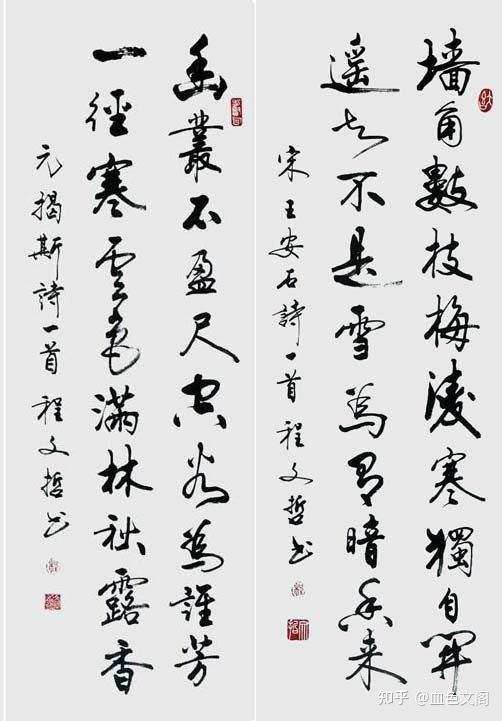 墙角數枝梅凌寒獨自開
遥知不是雪為有暗香来
宋王安石詩一首程文哲书
幽叢不盈尺空谷為誰芳
一徑寒雲色滿林秋露香
元揭斯詩一首程文哲书
知乎 @血色文阁